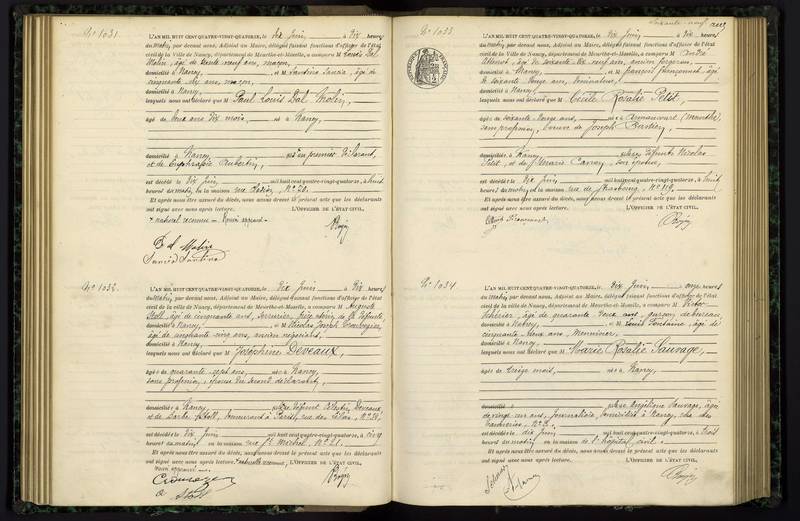 N° 1031.
L'AN MIL HUIT CENT QUATRE-VINGT-QUATORZE, le dix Juin, à dix heures
du matin, par devant nous, Adjoint au Maire, délégué faisant fonctions d'officier de l'état
civil de la ville de Nancy, département de Meurthe-et-Moselle, a comparu M Louis Dal
Molin, âgé de trente neuf ans, maçon,
domicilié à Nancy, et M Santino Sancio, âgé de
cinquante ans, maçon,
domicilié à Nancy,
lesquels nous ont déclaré que M Paul Louis Dal Molin,
âgé de deux ans dix mois, né à Nancy,
domicilié à Nancy, du premier déclarant,
et de Euphrasie Aubertin,
est décédé le dix Juin mil huit cent quatre-vingt-quatorze, à huit
heures du matin, en la maison rue N° 70.
Et après nous être assuré du décès, nous avons dressé le présent acte que les déclarants
ont signé avec nous après lecture. L'OFFICIER DE L'ÉTAT CIVIL,
naturel reconnu
Dal Molin
Sancio Santino
N° 1032.
L'AN MIL HUIT CENT QUATRE-VINGT-QUATORZE, le dix Juin, à dix heures
du matin, par devant nous, Adjoint au Maire, délégué faisant fonctions d'officier de l'état
civil de la ville de Nancy, département de Meurthe-et-Moselle, a comparu M Auguste
Stoll, âgé de cinquante ans, serrurier, frère utérin de la défunte
domicilié à Nancy, et M Nicolas Joseph
âgé de cinquante cinq ans, ancien négociant,
domicilié à Nancy,
lesquels nous ont déclaré que M Joséphine Deveaux,
âgée de quarante sept ans, née à Nancy,
sans profession, épouse du second déclarant,
domiciliée à Nancy, défunt Célestin Deveaux,
et de Barbe Stoll, demeurant à Paris, rue des N° 28,
est décédée le dix Juin mil huit cent quatre-vingt-quatorze, à cinq
heures du matin en la maison rue St Michel, N° 21.
Et après nous être assuré du décès, nous avons dressé le présent acte que les déclarants
ont signé avec nous après lecture. L'OFFICIER DE L'ÉTAT CIVIL,
Stoll
soixante neuf
N° 1033.
RÉPUBLIQUE FRANÇAISE
L'AN MIL HUIT CENT QUATRE-VINGT-QUATORZE, le dix Juin, à dix heures
du matin, par devant nous, Adjoint au Maire, délégué faisant fonctions d'officier de l'état
civil de la ville de Nancy, département de Meurthe-et-Moselle, a comparu M André
âgé de soixante dix neuf ans, ancien forgeron,
domicilié à Nancy, et M François âgé
de soixante ans,
domicilié à Nancy,
lesquels nous ont déclaré que M Cécile Rosalie Petit,
âgée de soixante onze ans, née à Armaucourt (Meurthe),
sans profession, veuve de Joseph Bastien,
domiciliée à Nancy, défunts Nicolas
Petit, et de Marie son épouse,
est décédée le dix Juin mil huit cent quatre-vingt-quatorze, à huit
heures du matin, en la maison rue de Strasbourg, N° 119.
Et après nous être assuré du décès, nous avons dressé le présent acte que les déclarants
ont signé avec nous après lecture. L'OFFICIER DE L'ÉTAT CIVIL,
N° 1034
L'AN MIL HUIT CENT QUATRE-VINGT-QUATORZE, le dix Juin, à onze heures
du matin, par devant nous, Adjoint au Maire, délégué faisant fonctions d'officier de l'état
civil de la ville de Nancy, département de Meurthe-et-Moselle, a comparu M Victor
âgé de quarante deux ans, garçon de bureau,
domicilié à Nancy, et M Louis Fontaine, âgé de
cinquante deux ans, menuisier,
domicilié à Nancy,
lesquels nous ont déclaré que M Marie Rosalie Sauvage,
âgée de treize mois, née à Nancy,
domiciliée à Angélique Sauvage, âgée
de vingt un ans, journalière, domiciliée à Nancy, rue des
Tanneries, N° 2.
est décédée le dix Juin mil huit cent quatre-vingt-quatorze, à trois
heures du matin en la maison de l'hôpital civil.
Et après nous être assuré du décès, nous avons dressé le présent acte que les déclarants
ont signé avec nous après lecture. L'OFFICIER DE L'ÉTAT CIVIL,